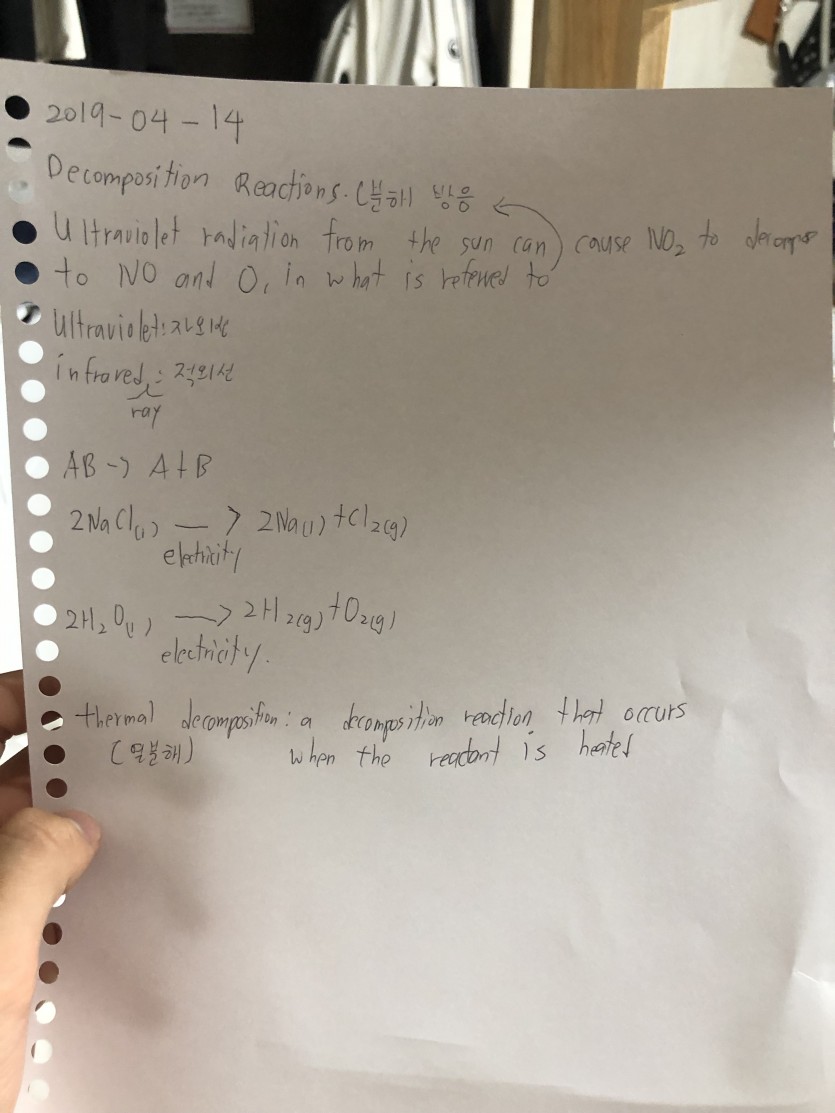 2019-04-14
Decomposition Reactions. (분해) 반응
Ultraviolet radiation from the sun can cause NO₂ to decompose
to NO and O, in what is referred to
Ultraviolet: 자외선
infrared : 적외선
ray
AB -> A+B
2NaCl(l) —> 2Na(l)+Cl₂(g)
electricity
2H₂O(l) —> 2H₂(g)+O₂(g)
electricity.
thermal decomposition: a decomposition reaction that occurs
(열분해) when the reactant is heated